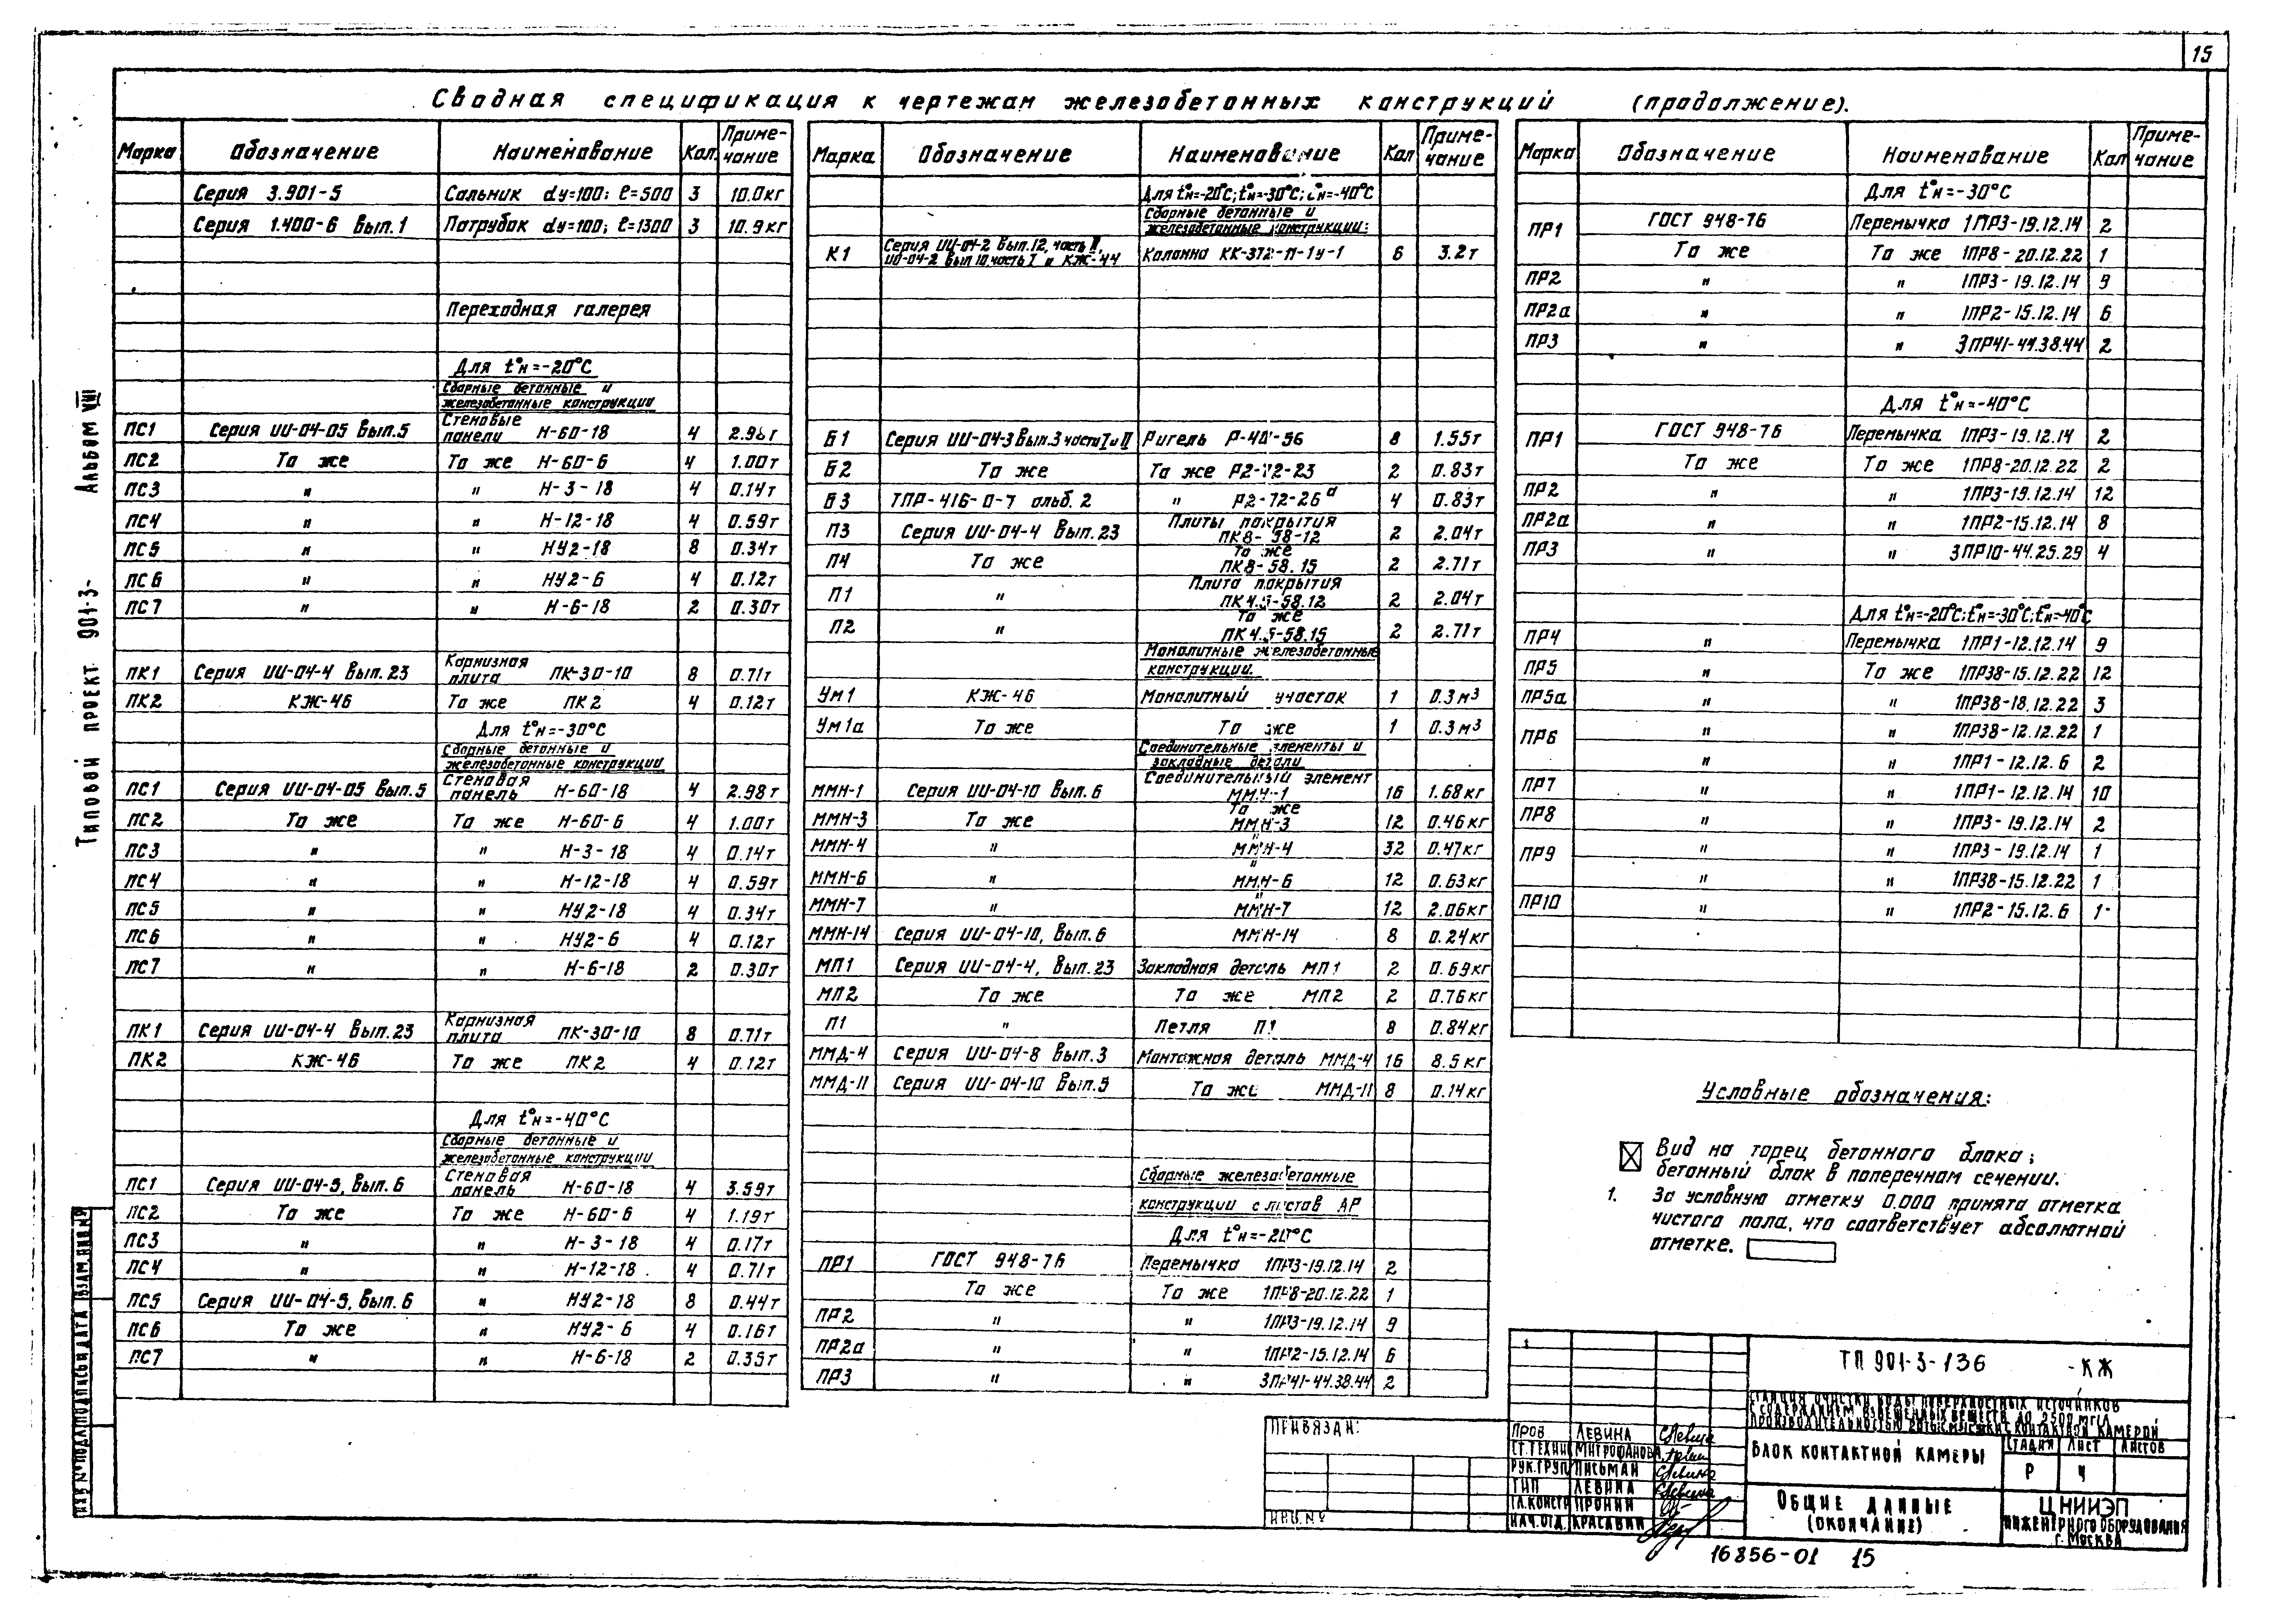 15
Сводная спецификация к чертежам железобетонных конструкций (продолжение).
Марка Обозначение Наименование Кол. Примечание
Серия 3.901-5 Сальник dу=100; ℓ=500 3 10.0кг
Серия 1.400-6 Вып.1 Патрубок dу=100; ℓ=1300 3 10.9кг
Переходная галерея
Для t°н=-20°С
Сборные бетонные и
железобетонные конструкции
ПС1 Серия ИИ-04-05 Вып.5 Стеновые панели Н-60-18 4 2.98т
ПС2 То же То же Н-60-6 4 1.00т
ПС3 " " Н-3-18 4 0.14т
ПС4 " " Н-12-18 4 0.59т
ПС5 " " НУ2-18 8 0.34т
ПС6 " " НУ2-6 4 0.12т
ПС7 " " Н-6-18 2 0.30т
ПК1 Серия ИИ-04-4 Вып.23 Карнизная плита ПК-30-10 8 0.71т
ПК2 КЖ-46 То же ПК2 4 0.12т
Для t°н=-30°С
Сборные бетонные и
железобетонные конструкции
ПС1 Серия ИИ-04-05 Вып.5 Стеновая панель Н-60-18 4 2.98т
ПС2 То же То же Н-60-6 4 1.00т
ПС3 " " Н-3-18 4 0.14т
ПС4 " " Н-12-18 4 0.59т
ПС5 " " НУ2-18 4 0.34т
ПС6 " " НУ2-6 4 0.12т
ПС7 " " Н-6-18 2 0.30т
ПК1 Серия ИИ-04-4 Вып.23 Карнизная плита ПК-30-10 8 0.71т
ПК2 КЖ-46 То же ПК2 4 0.12т
Для t°н=-40°С
Сборные бетонные и
железобетонные конструкции
ПС1 Серия ИИ-04-5, Вып.6 Стеновая панель Н-60-18 4 3.59т
ПС2 То же То же Н-60-6 4 1.19т
ПС3 " " Н-3-18 4 0.17т
ПС4 " " Н-12-18 4 0.71т
ПС5 Серия ИИ-04-5, Вып.6 " НУ2-18 8 0.44т
ПС6 То же " НУ2-6 4 0.16т
ПС7 " " Н-6-18 2 0.35т
Марка Обозначение Наименование Кол Примечание
Для t°н=-20°С; t°н=-30°С; t°н=-40°С
Сборные бетонные и
железобетонные конструкции:
К1 Серия ИИ-04-2 Вып.12, часть II, ИИ-04-2 Вып 10 часть I и КЖ-44 Колонна 6 3.2т
Б1 Серия ИИ-04-3 Вып.3 части I и II Ригель 8 1.55т
Б2 То же То же Р2-72-23 2 0.83т
Б3 ТПР-416-0-7 альб. 2 " Р2-72-26а 4 0.83т
П3 Серия ИИ-04-4 Вып.23 Плиты покрытия ПК8-58-12 2 2.04т
П4 То же То же ПК8-58.15 2 2.71т
П1 " Плита покрытия ПК4.5-58.12 2 2.04т
П2 " То же ПК4.5-58.15 2 2.71т
Монолитные железобетонные
конструкции.
Ум1 КЖ-46 Монолитный участок 1 0.3м³
Ум1а То же То же 1 0.3м³
Соединительные элементы и
закладные детали
ММН-1 Серия ИИ-04-10 Вып.6 Соединительный элемент ММН-1 16 1.68кг
ММН-3 То же То же ММН-3 12 0.46кг
ММН-4 " " ММН-4 32 0.47кг
ММН-6 " " ММН-6 12 0.63кг
ММН-7 " " ММН-7 12 2.06кг
ММН-14 Серия ИИ-04-10, Вып.6 ММН-14 8 0.24кг
МП1 Серия ИИ-04-4, Вып.23 Закладная деталь МП1 2 0.69кг
МП2 То же То же МП2 2 0.76кг
П1 " Петля П1 8 0.84кг
ММД-4 Серия ИИ-04-8 Вып.3 Монтажная деталь ММД-4 16 8.5кг
ММД-11 Серия ИИ-04-10 Вып.5 То же ММД-11 8 0.14кг
Сборные железобетонные
конструкции с листов АР
Для t°н=-20°С
ПР1 ГОСТ 948-76 Перемычка 1ПР3-19.12.14 2
То же То же 1ПР8-20.12.22 1
ПР2 " " 1ПР3-19.12.14 9
ПР2а " " 1ПР2-15.12.14 6
ПР3 " " 3ПР41-44.38.44 2
Марка Обозначение Наименование Кол Примечание
Для t°н=-30°С
ПР1 ГОСТ 948-76 Перемычка 1ПР3-19.12.14 2
То же То же 1ПР8-20.12.22 1
ПР2 " " 1ПР3-19.12.14 9
ПР2а " " 1ПР2-15.12.14 6
ПР3 " " 3ПР41-44.38.44 2
Для t°н=-40°С
ПР1 ГОСТ 948-76 Перемычка 1ПР3-19.12.14 2
То же То же 1ПР8-20.12.22 2
ПР2 " " 1ПР3-19.12.14 12
ПР2а " " 1ПР2-15.12.14 8
ПР3 " " 3ПР10-44.25.29 4
Для t°н=-20°С; t°н=-30°С; t°н=-40°С
ПР4 " Перемычка 1ПР1-12.12.14 9
ПР5 " То же 1ПР38-15.12.22 12
ПР5а " " 1ПР38-18.12.22 3
ПР6 " 1ПР38-12.12.22 1
" " 1ПР1-12.12.6 2
ПР7 " " 1ПР1-12.12.14 10
ПР8 " " 1ПР3-19.12.14 2
ПР9 " " 1ПР3-19.12.14 1
" " 1ПР38-15.12.22 1
ПР10 " " 1ПР2-15.12.6 1
Условные обозначения:
Вид на торец бетонного блока;
бетонный блок в поперечном сечении.
1. За условную отметку 0.000 принята отметка
чистого пола, что соответствует абсолютной
отметке.
Типовой проект 901-3- Альбом VIII
ИНВ.№ПОДЛ ПОДПИСЬ И ДАТА ВЗАМ.ИНВ.№
ПРИВЯЗАН:
ИНВ.№
ПРОВ ЛЕВИНА
СТ.ТЕХНИК МИТРОФАНОВА
РУК.ГРУП ПИСЬМАН
ГИП ЛЕВИНА
ГЛ.КОНСТР ПРОНИН
НАЧ.ОТД. КРАСАВИН
ТП 901-3-136 -КЖ
СТАНЦИЯ ОЧИСТКИ ВОДЫ ПОВЕРХНОСТНЫХ ИСТОЧНИКОВ
С СОДЕРЖАНИЕМ ВЗВЕШЕННЫХ ВЕЩЕСТВ ДО 2500 мг/л
ПРОИЗВОДИТЕЛЬНОСТЬЮ С КОНТАКТНОЙ КАМЕРОЙ
БЛОК КОНТАКТНОЙ КАМЕРЫ
СТАДИЯ ЛИСТ ЛИСТОВ
Р 4
ОБЩИЕ ДАННЫЕ
(ОКОНЧАНИЕ)
ЦНИИЭП
ИНЖЕНЕРНОГО ОБОРУДОВАНИЯ
г. МОСКВА
16856-01 15